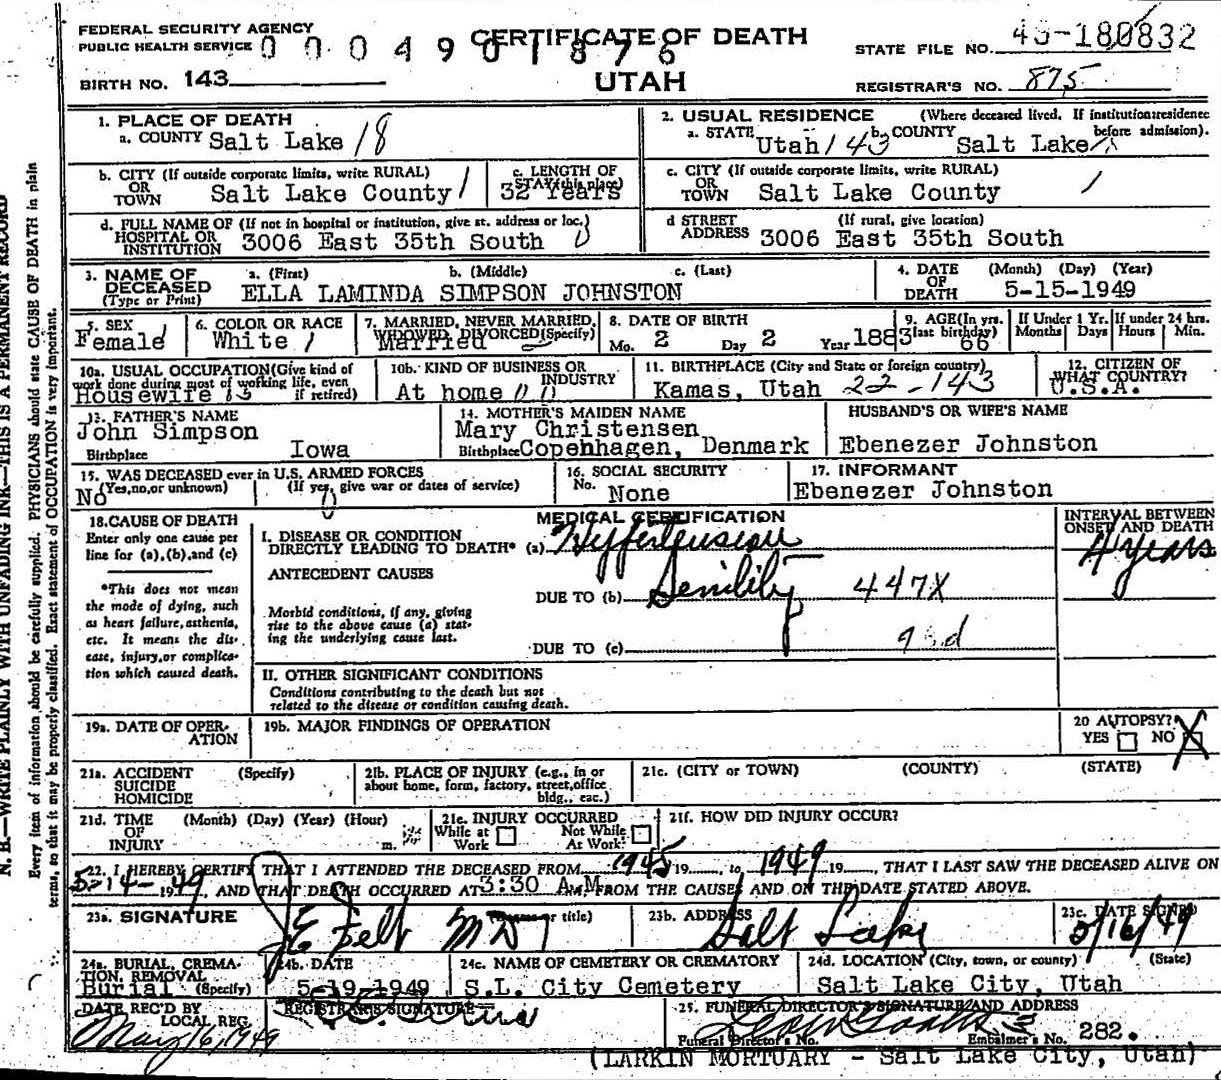 FEDERAL SECURITY AGENCY
PUBLIC HEALTH SERVICE
0004901876
CERTIFICATE OF DEATH
UTAH
STATE FILE NO. 180832
BIRTH NO. 143
REGISTRAR'S NO. 875
1. PLACE OF DEATH
a. COUNTY Salt Lake 18
2. USUAL RESIDENCE (Where deceased lived. If institution:residence before admission).
a. STATE Utah 143 b. COUNTY Salt Lake
b. CITY (If outside corporate limits, write RURAL)
OR
TOWN Salt Lake County 1
c. LENGTH OF
STAY (this place)
32 Years
c. CITY (If outside corporate limits, write RURAL)
OR
TOWN Salt Lake County
d. FULL NAME OF (If not in hospital or institution, give st. address or loc.)
HOSPITAL OR
INSTITUTION 3006 East 35th South
d STREET (If rural, give location)
ADDRESS 3006 East 35th South
3. NAME OF DECEASED (Type or Print)
a. (First) b. (Middle) c. (Last)
ELLA LAMINDA SIMPSON JOHNSTON
4. DATE OF DEATH (Month) (Day) (Year)
5-15-1949
5. SEX
Female 1
6. COLOR OR RACE
White 1
7. MARRIED, NEVER MARRIED,
WIDOWED, DIVORCED(Specify)
Married
8. DATE OF BIRTH
Mo. 2 Day 2 Year 1883
9. AGE(In yrs. last birthday)
66
If Under 1 Yr. Months Days
If under 24 hrs. Hours Min.
10a. USUAL OCCUPATION(Give kind of
work done during most of working life, even
if retired)
Housewife
10b. KIND OF BUSINESS OR
INDUSTRY
At home
11. BIRTHPLACE (City and State or foreign country)
Kamas, Utah 22-143
12. CITIZEN OF
WHAT COUNTRY?
U.S.A.
13. FATHER'S NAME
John Simpson
Birthplace Iowa
14. MOTHER'S MAIDEN NAME
Mary Christensen
Birthplace Copenhagen, Denmark
HUSBAND'S OR WIFE'S NAME
Ebenezer Johnston
15. WAS DECEASED ever in U.S. ARMED FORCES
(Yes,no,or unknown) (If yes, give war or dates of service)
No
16. SOCIAL SECURITY
No. None
17. INFORMANT
Ebenezer Johnston
18. CAUSE OF DEATH
Enter only one cause per
line for (a),(b),and (c)
*This does not mean
the mode of dying, such
as heart failure,asthenia,
etc. It means the dis-
ease, injury,or complica-
tion which caused death.
MEDICAL CERTIFICATION
I. DISEASE OR CONDITION
DIRECTLY LEADING TO DEATH* (a) Hypertension
ANTECEDENT CAUSES
DUE TO (b) Senility 447X
Morbid conditions, if any, giving
rise to the above cause (a) stat-
ing the underlying cause last.
DUE TO (c)
II. OTHER SIGNIFICANT CONDITIONS
Conditions contributing to the death but not
related to the disease or condition causing death.
INTERVAL BETWEEN
ONSET AND DEATH
4 years
19a. DATE OF OPER-
ATION
19b. MAJOR FINDINGS OF OPERATION
20 AUTOPSY?
YES NO X
21a. ACCIDENT (Specify)
SUICIDE
HOMICIDE
21b. PLACE OF INJURY (e.g., in or
about home, form, factory, street,office
bldg., eac.)
21c. (CITY or TOWN) (COUNTY) (STATE)
21d. TIME (Month) (Day) (Year) (Hour)
OF
INJURY m.
21e. INJURY OCCURRED
While at Work Not While At Work
21f. HOW DID INJURY OCCUR?
22. I HEREBY CERTIFY THAT I ATTENDED THE DECEASED FROM 1945 19___, to 1949 19___, THAT I LAST SAW THE DECEASED ALIVE ON
5-14-49 19___, AND THAT DEATH OCCURRED AT 3:30 A.M. FROM THE CAUSES AND ON THE DATE STATED ABOVE.
23a. SIGNATURE (Degree or title)
J E Felt MD
23b. ADDRESS
Salt Lake
23c. DATE SIGNED
5/16/49
24a. BURIAL, CREMA-
TION, REMOVAL
(Specify)
Burial
24b. DATE
5-19-1949
24c. NAME OF CEMETERY OR CREMATORY
S.L. City Cemetery
24d. LOCATION (City, town, or county) (State)
Salt Lake City, Utah
DATE REC'D BY
LOCAL REG.
May 16, 1949
REGISTRAR'S SIGNATURE
25. FUNERAL DIRECTOR'S SIGNATURE/AND ADDRESS
Funeral Director's No. Embalmer's No. 282.
(LARKIN MORTUARY - Salt Lake City, Utah)
N. B.—WRITE PLAINLY WITH UNFADING INK—THIS IS A PERMANENT RECORD
Every item of information should be carefully supplied. PHYSICIANS should state CAUSE OF DEATH in plain
terms, so that it may be properly classified. Exact statement of OCCUPATION is very important.